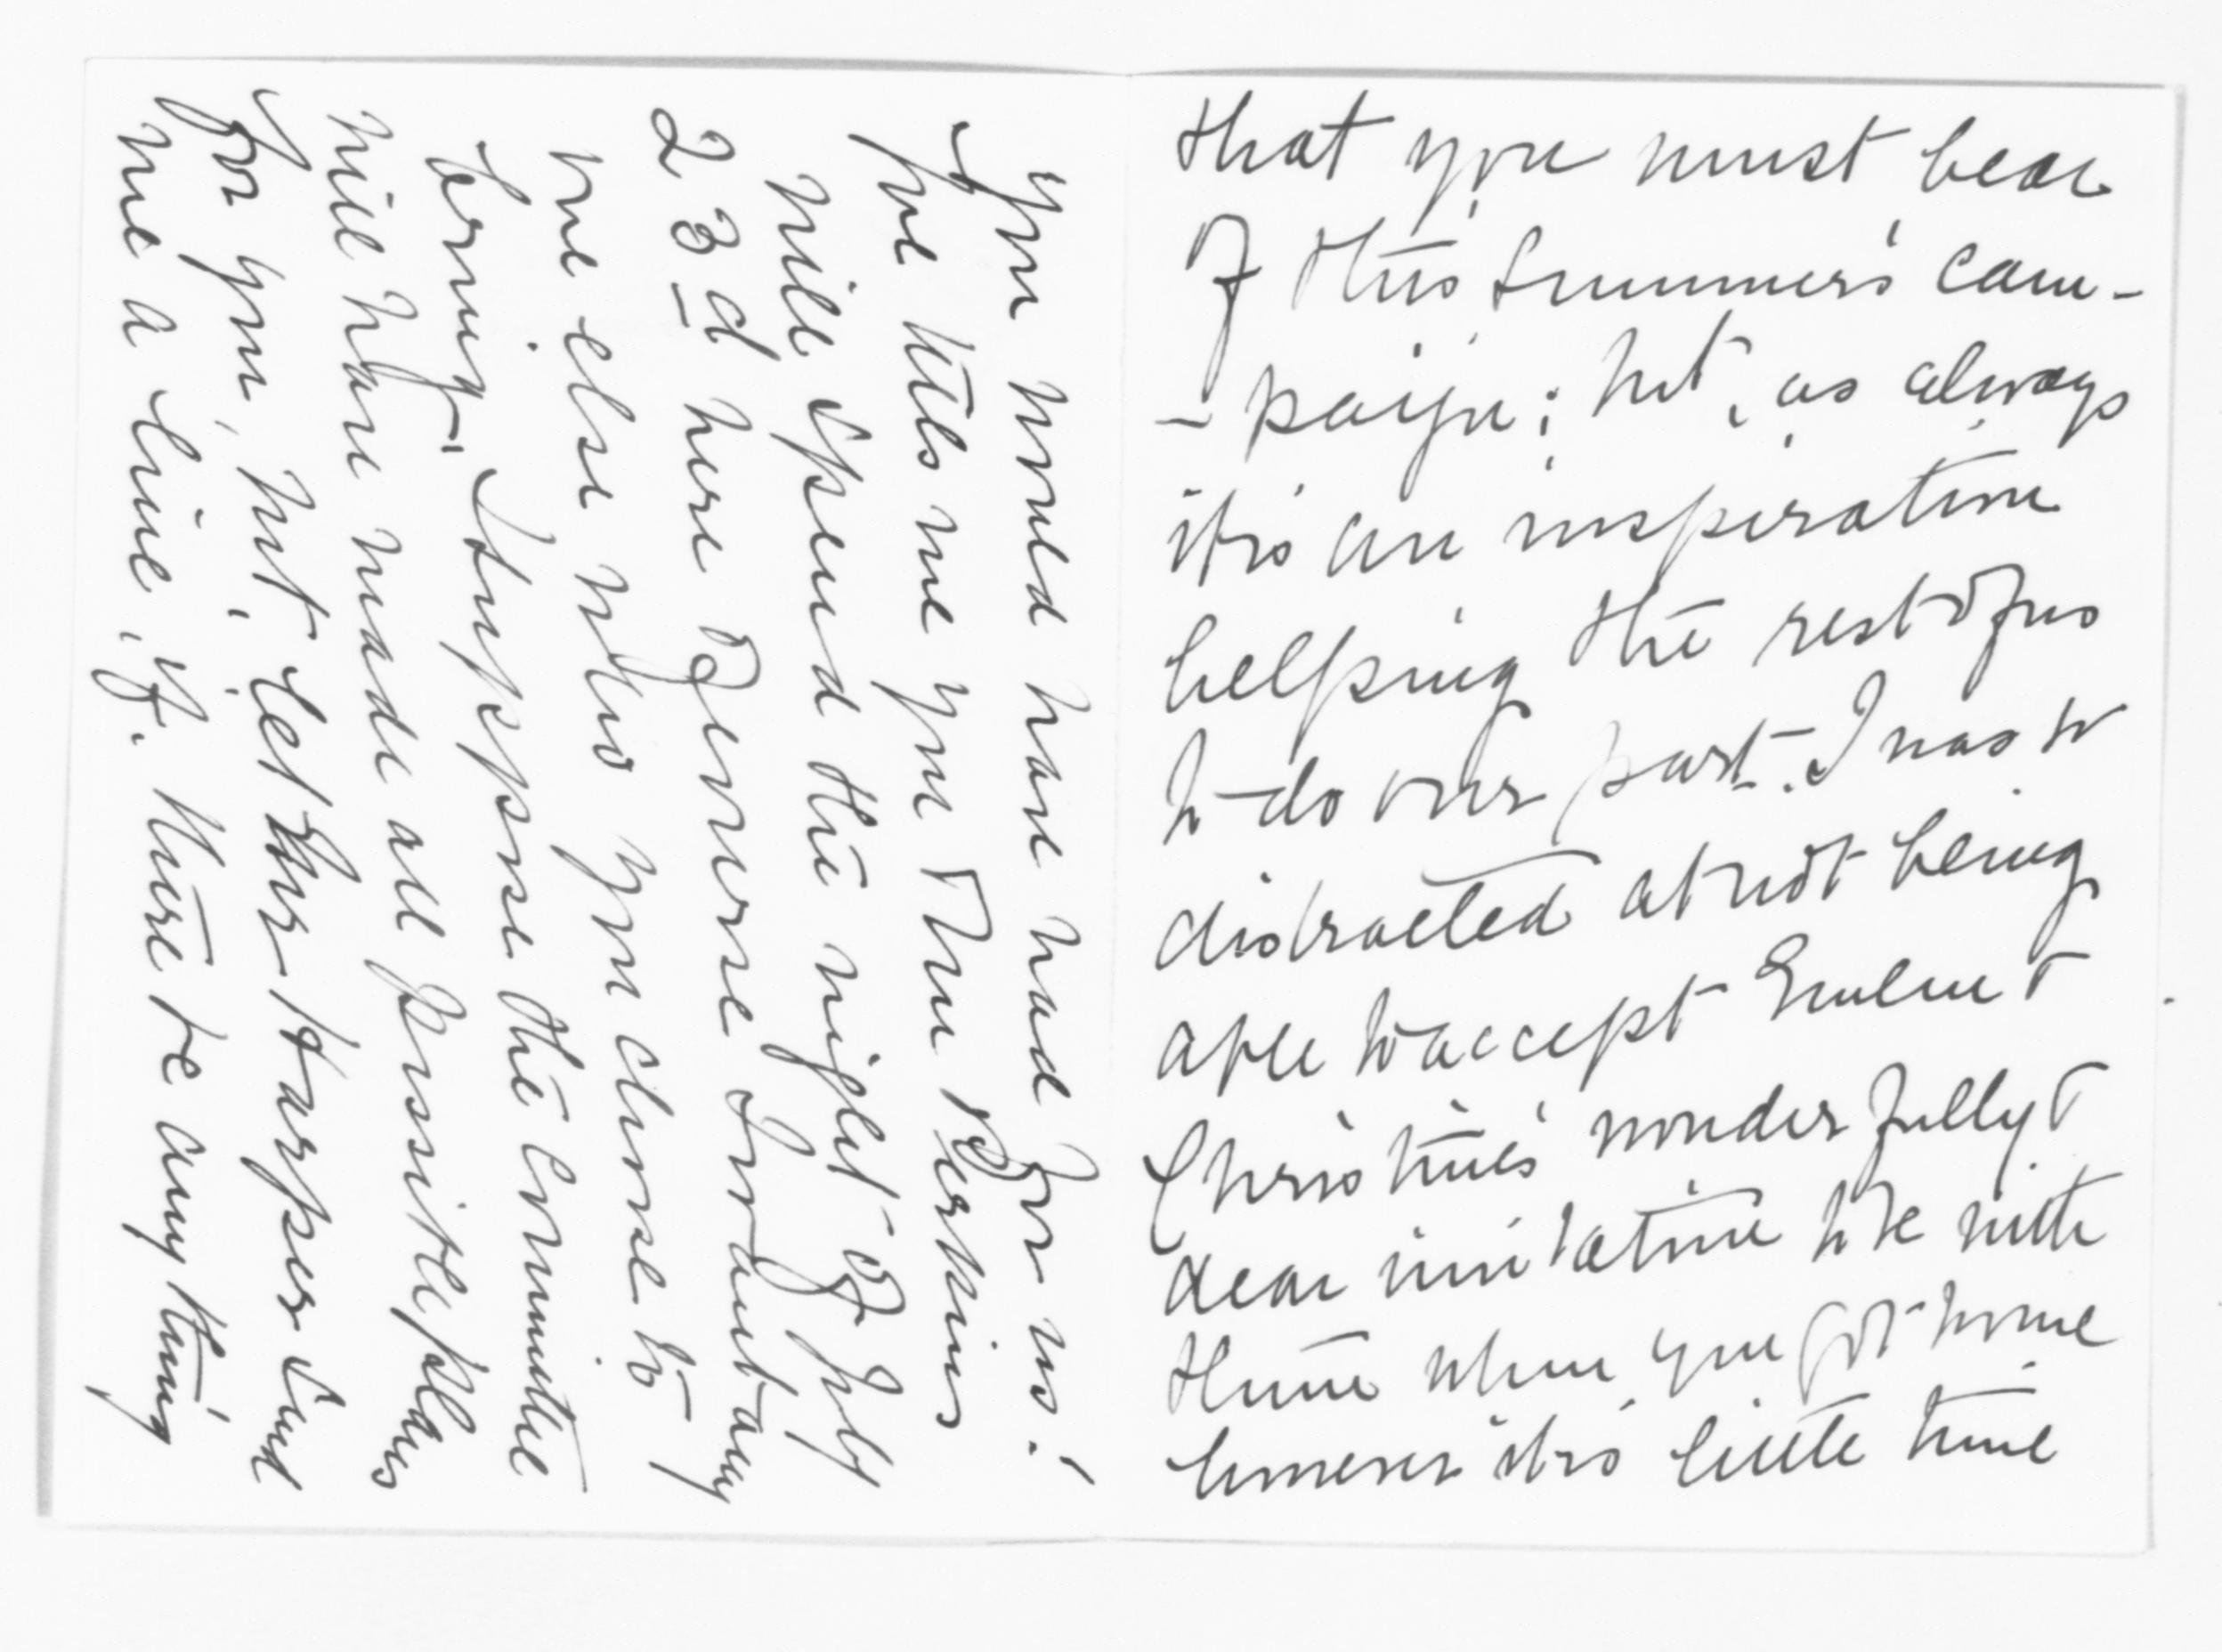 that you must bear
of this summer's cam-
-paign; but, as always
it is an inspiration
helping the rest of us
to do our part. I was so
distracted at not being
able to accept Emlen &
Christine's wonderfully &
dear invitation to be with
them when you got home
however it is little time
you would have had for us!
Joe tells me you & Mr Perkins
will spend the night of July
23-d here. Of course I want any
one else who you choose to
bring- I suppose the committee
will have made all possible plans
for you, but, let Mr Harper send
me a line, if there be anything